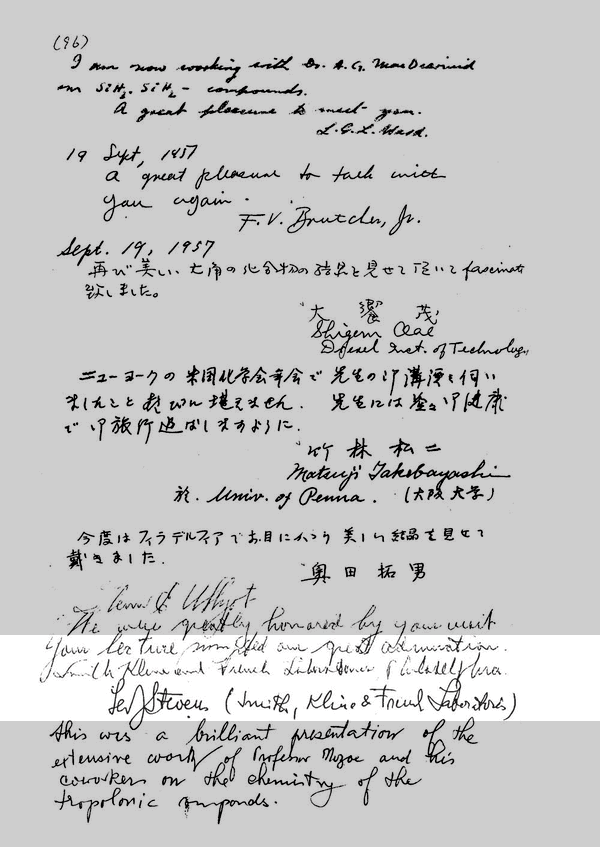 (96)
I am now working with Dr. A. G. MacDiarmid
on SiH3. SiH2 - compounds.
A great pleasure to meet you.
L. G. L.
19 Sept, 1957
A great pleasure to talk with
you again.
F. V. Brutcher, Jr.
Sept. 19, 1957
再び美しい七角の化合物の結晶を見せて頂いて fascinate
致しました。
大饗 茂
Shigeru Oae
Drexel Inst. of Technology
ニューヨークの米国化学会年会で先生の御講演を伺い
ましたこと喜びに堪えません. 先生には益々御健康
で御旅行遊ばしますように.
竹林松二
Matsuji Takebayashi
於. Univ. of Penna. (大阪大学)
今度はフィラデルフィアでお目にかかり美しい結晶を見せて
戴きました.
奥田拓男
We were greatly honored by your visit
Your lecture our great admiration.
Smith Kline and French Laboratories, Philadelphia.
Stevens (Smith, Kline & French Laboratories)
This was a brilliant presentation of the
extensive work of Professor Nozoe and his
coworkers on the chemistry of the
tropolonic compounds.